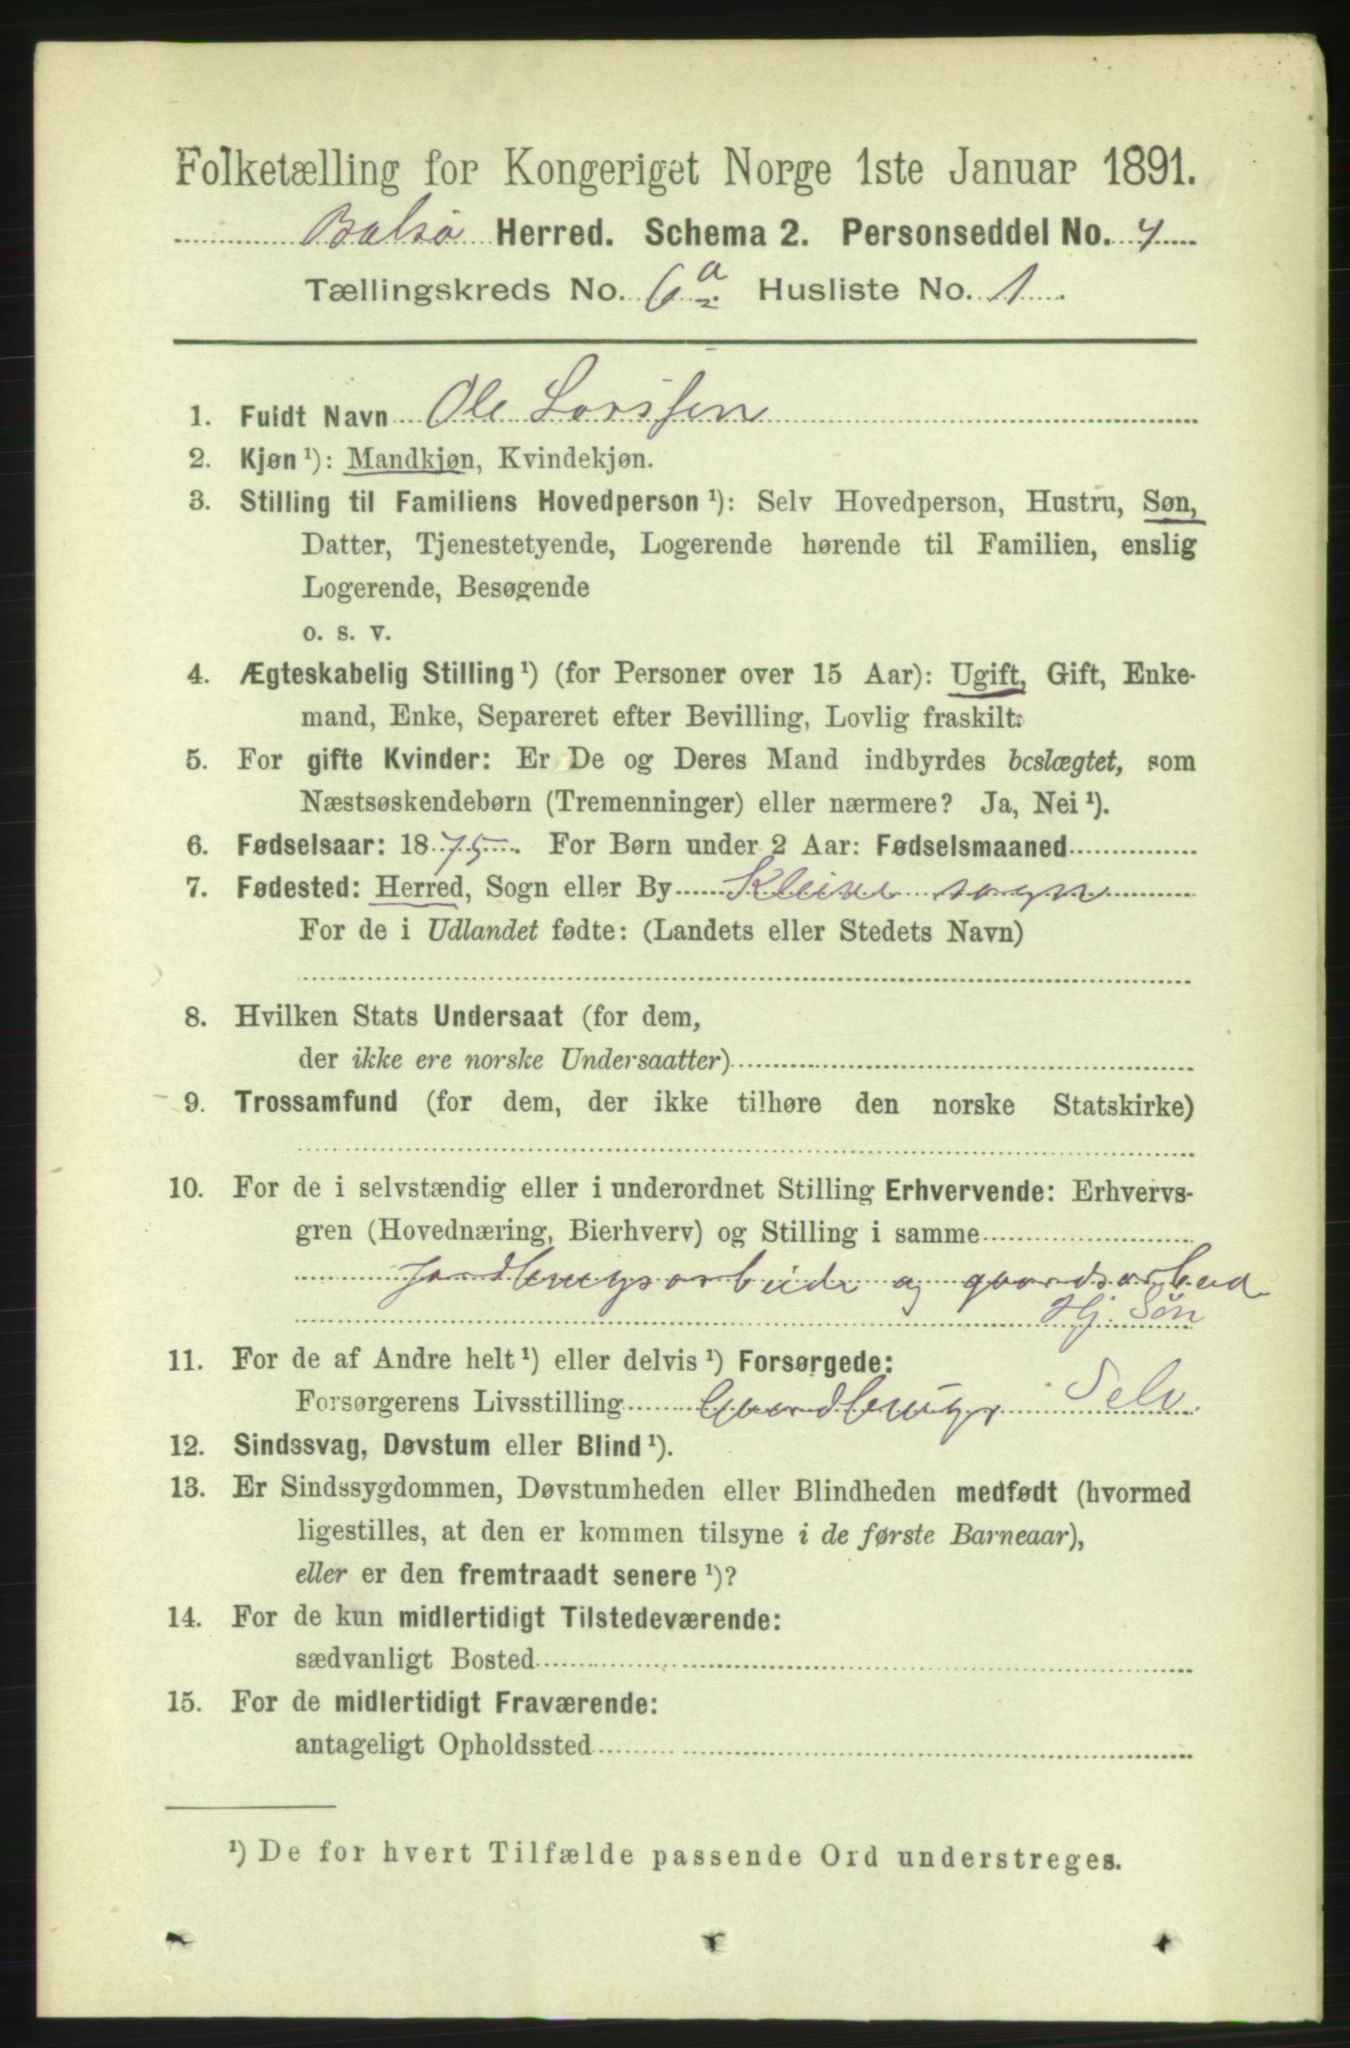 Folketælling for Kongeriget Norge 1ste Januar 1891.
Balsø Herred. Schema 2. Personseddel No. 4
Tællingskreds No. 6a Husliste No. 1
1. Fuldt Navn Ole Larssen
2. Kjøn¹): Mandkjøn, Kvindekjøn.
3. Stilling til Familiens Hovedperson¹): Selv Hovedperson, Hustru, Søn,
Datter, Tjenestetyende, Logerende hørende til Familien, enslig
Logerende, Besøgende
o. s. v.
4. Ægteskabelig Stilling¹) (for Personer over 15 Aar): Ugift, Gift, Enke-
mand, Enke, Separeret efter Bevilling, Lovlig fraskilt.
5. For gifte Kvinder: Er De og Deres Mand indbyrdes beslægtet, som
Næstsøskendebørn (Tremenninger) eller nærmere? Ja, Nei¹).
6. Fødselsaar: 1875. For Børn under 2 Aar: Fødselsmaaned
7. Fødested: Herred, Sogn eller By sogn
For de i Udlandet fødte: (Landets eller Stedets Navn)
8. Hvilken Stats Undersaat (for dem,
der ikke ere norske Undersaatter)
9. Trossamfund (for dem, der ikke tilhøre den norske Statskirke)
10. For de i selvstændig eller i underordnet Stilling Erhvervende: Erhvervs-
gren (Hovednæring, Bierhverv) og Stilling i samme
Jordbrugsarbeide og gaardsarbeid
Hj. Søn
11. For de af Andre helt¹) eller delvis¹) Forsørgede:
Forsørgerens Livsstilling Gaardbruger Selv.
12. Sindssvag, Døvstum eller Blind¹).
13. Er Sindssygdommen, Døvstumheden eller Blindheden medfødt (hvormed
ligestilles, at den er kommen tilsyne i de første Barneaar),
eller er den fremtraadt senere¹)?
14. For de kun midlertidigt Tilstedeværende:
sædvanligt Bosted
15. For de midlertidigt Fraværende:
antageligt Opholdssted
¹) De for hvert Tilfælde passende Ord understreges.